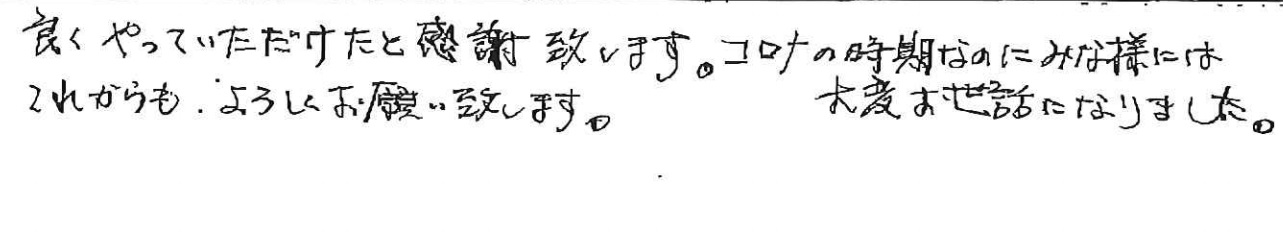 良くやっていただけたと感謝致します。コロナの時期なのにみな様には
大変お世話になりました。
これからも.よろしくお願い致します。